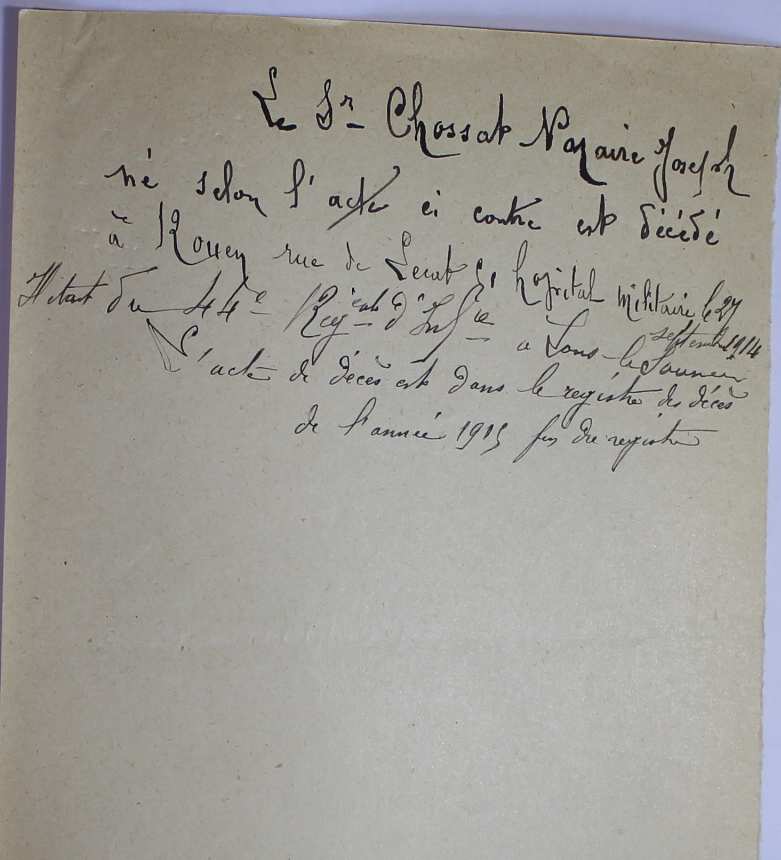 Le Sr Chossat Nazaire Joseph
né selon l'acte ci contre est décédé
à Rouen rue de Lecat, hopital militaire le 27
septembre 1914
Il était du 44e Régt d'Infie a Lons-le-Saunier
L'acte de décès est dans le registre des décès
de l'année 1915 fin du registre